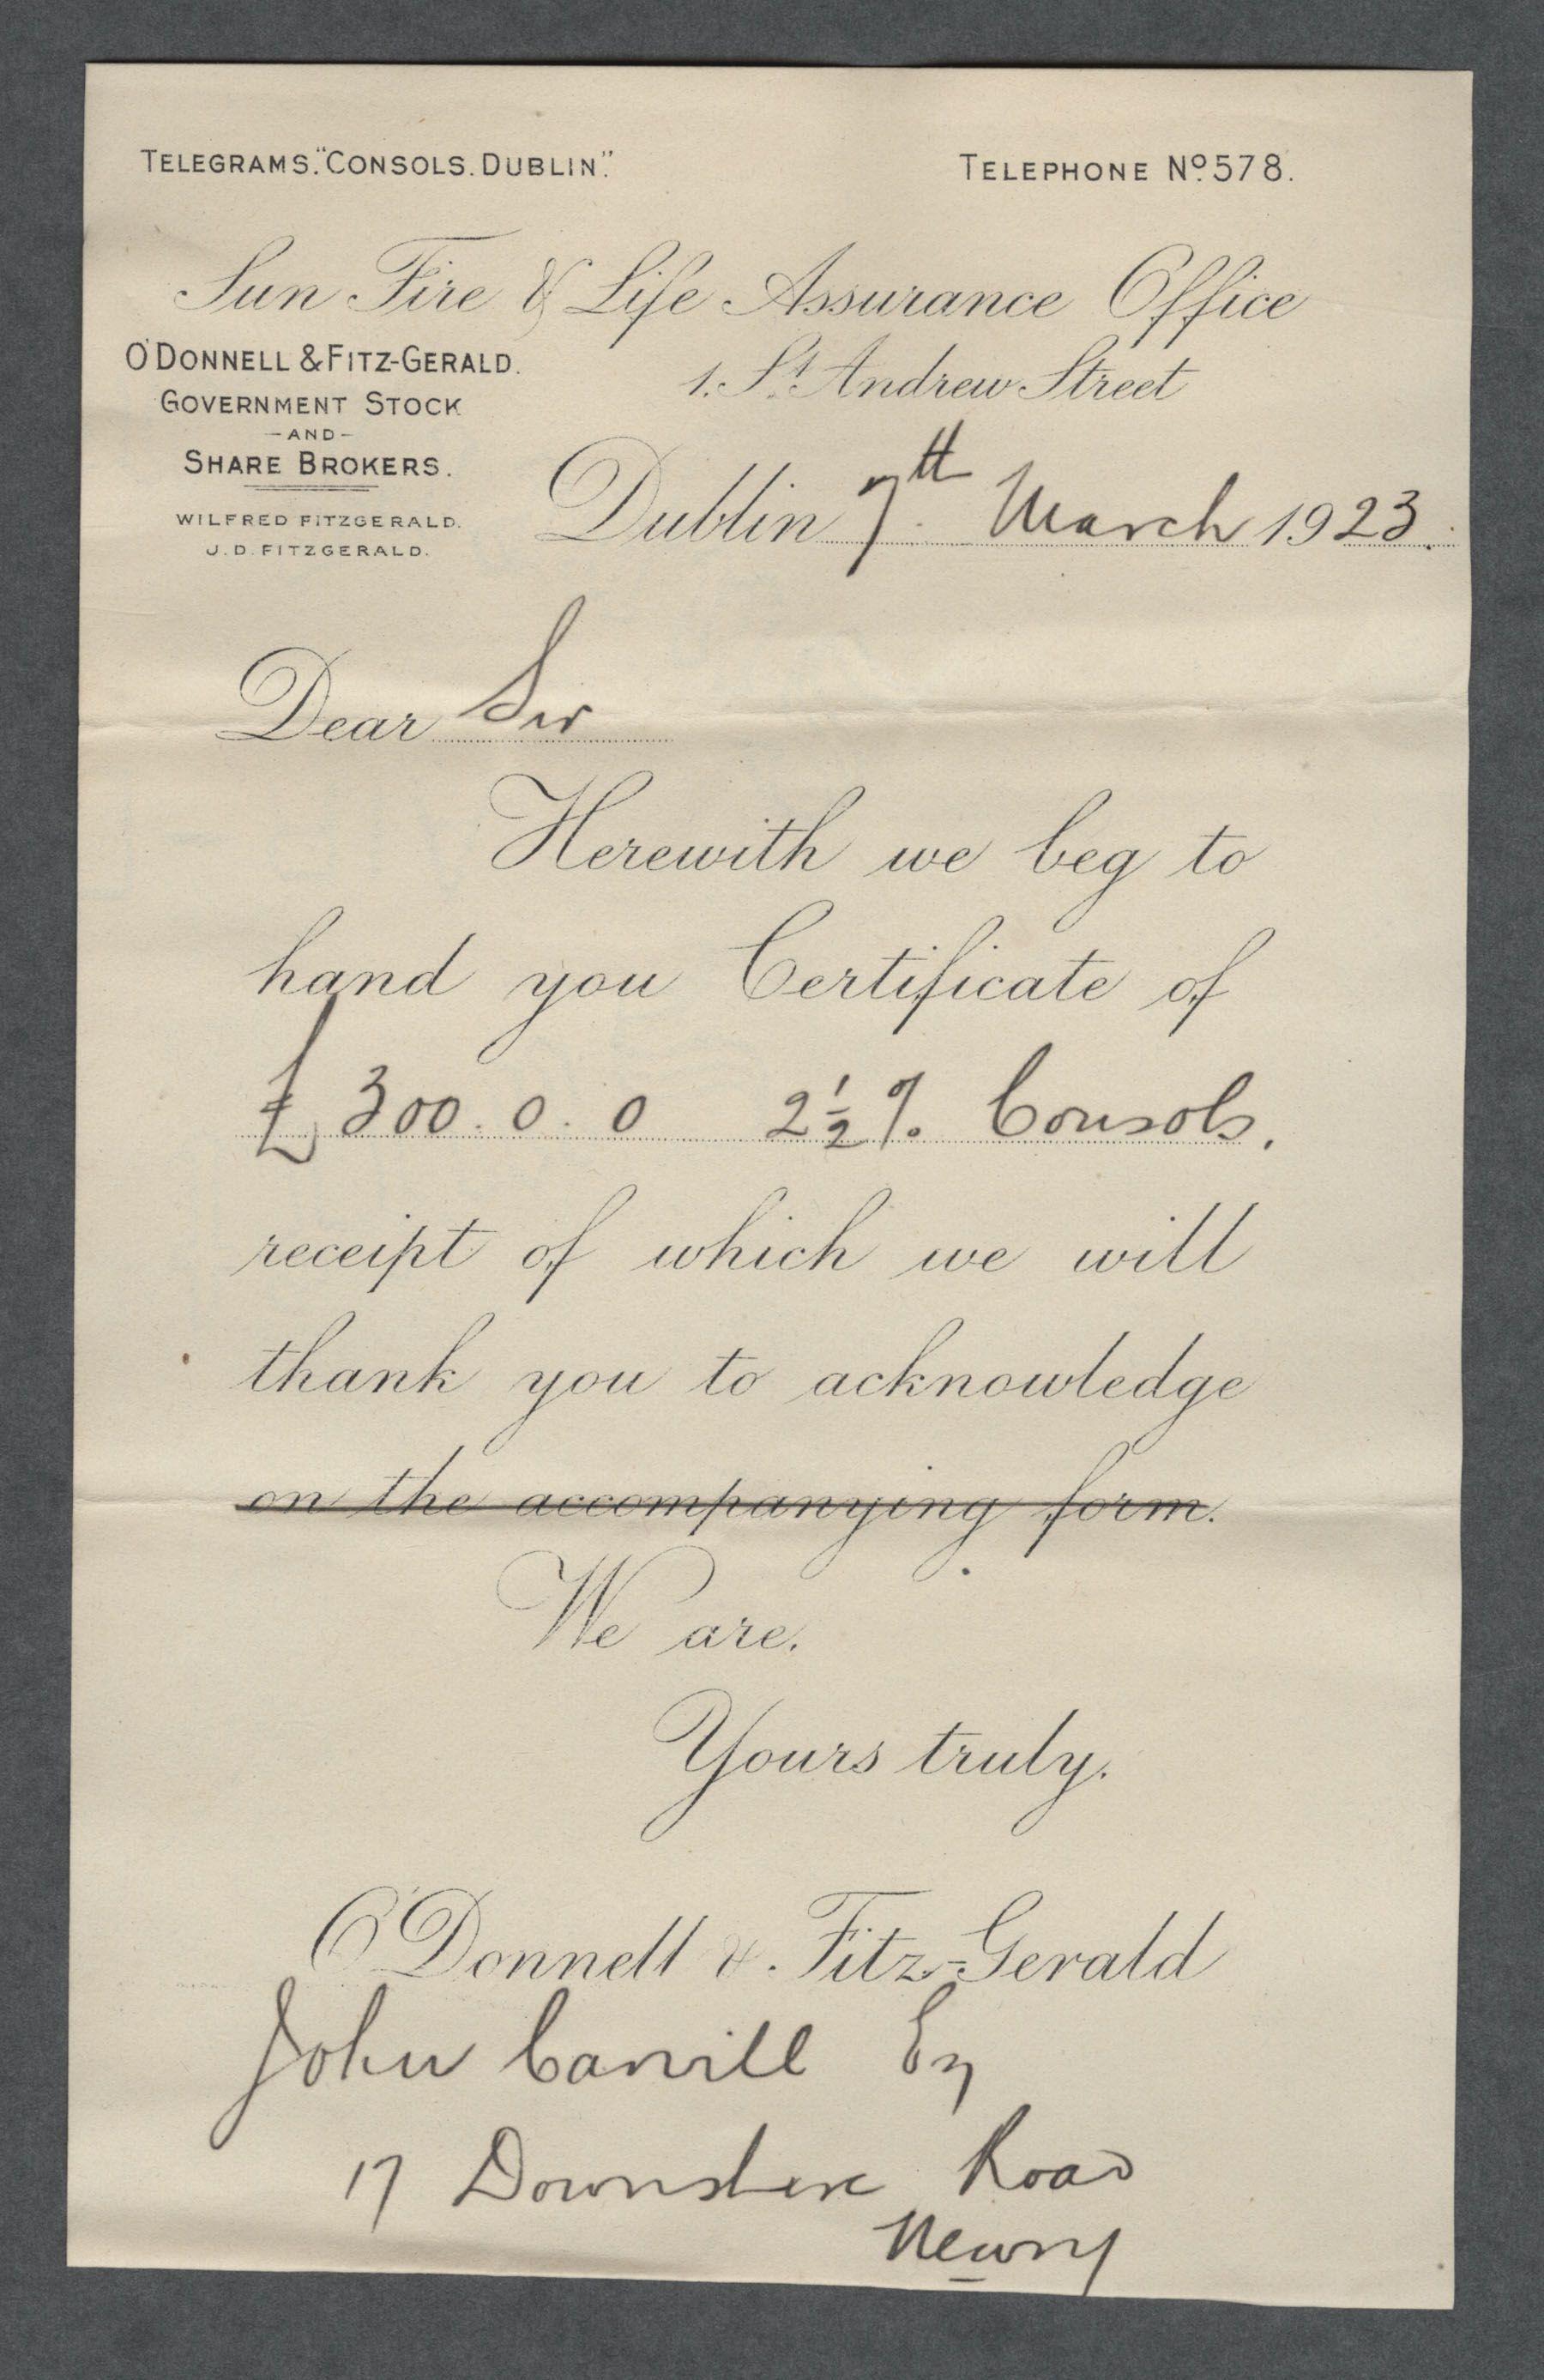 TELEGRAMS. "CONSOLS. DUBLIN".
TELEPHONE No. 578.
Sun Fire & Life Assurance Office
O'DONNELL & FITZ-GERALD.
GOVERNMENT STOCK
- AND -
SHARE BROKERS.
WILFRED FITZGERALD.
J. D. FITZGERALD.
1. St. Andrew Street
Dublin 7th March 1923.
Dear Sir
Herewith we beg to
hand you Certificate of
£ 300. 0. 0 2½% Consols.
receipt of which we will
thank you to acknowledge
on the accompanying form.
We are.
Yours truly.
O'Donnell & Fitz-Gerald
John Carvill Esq
17 Downshire Road
Newry